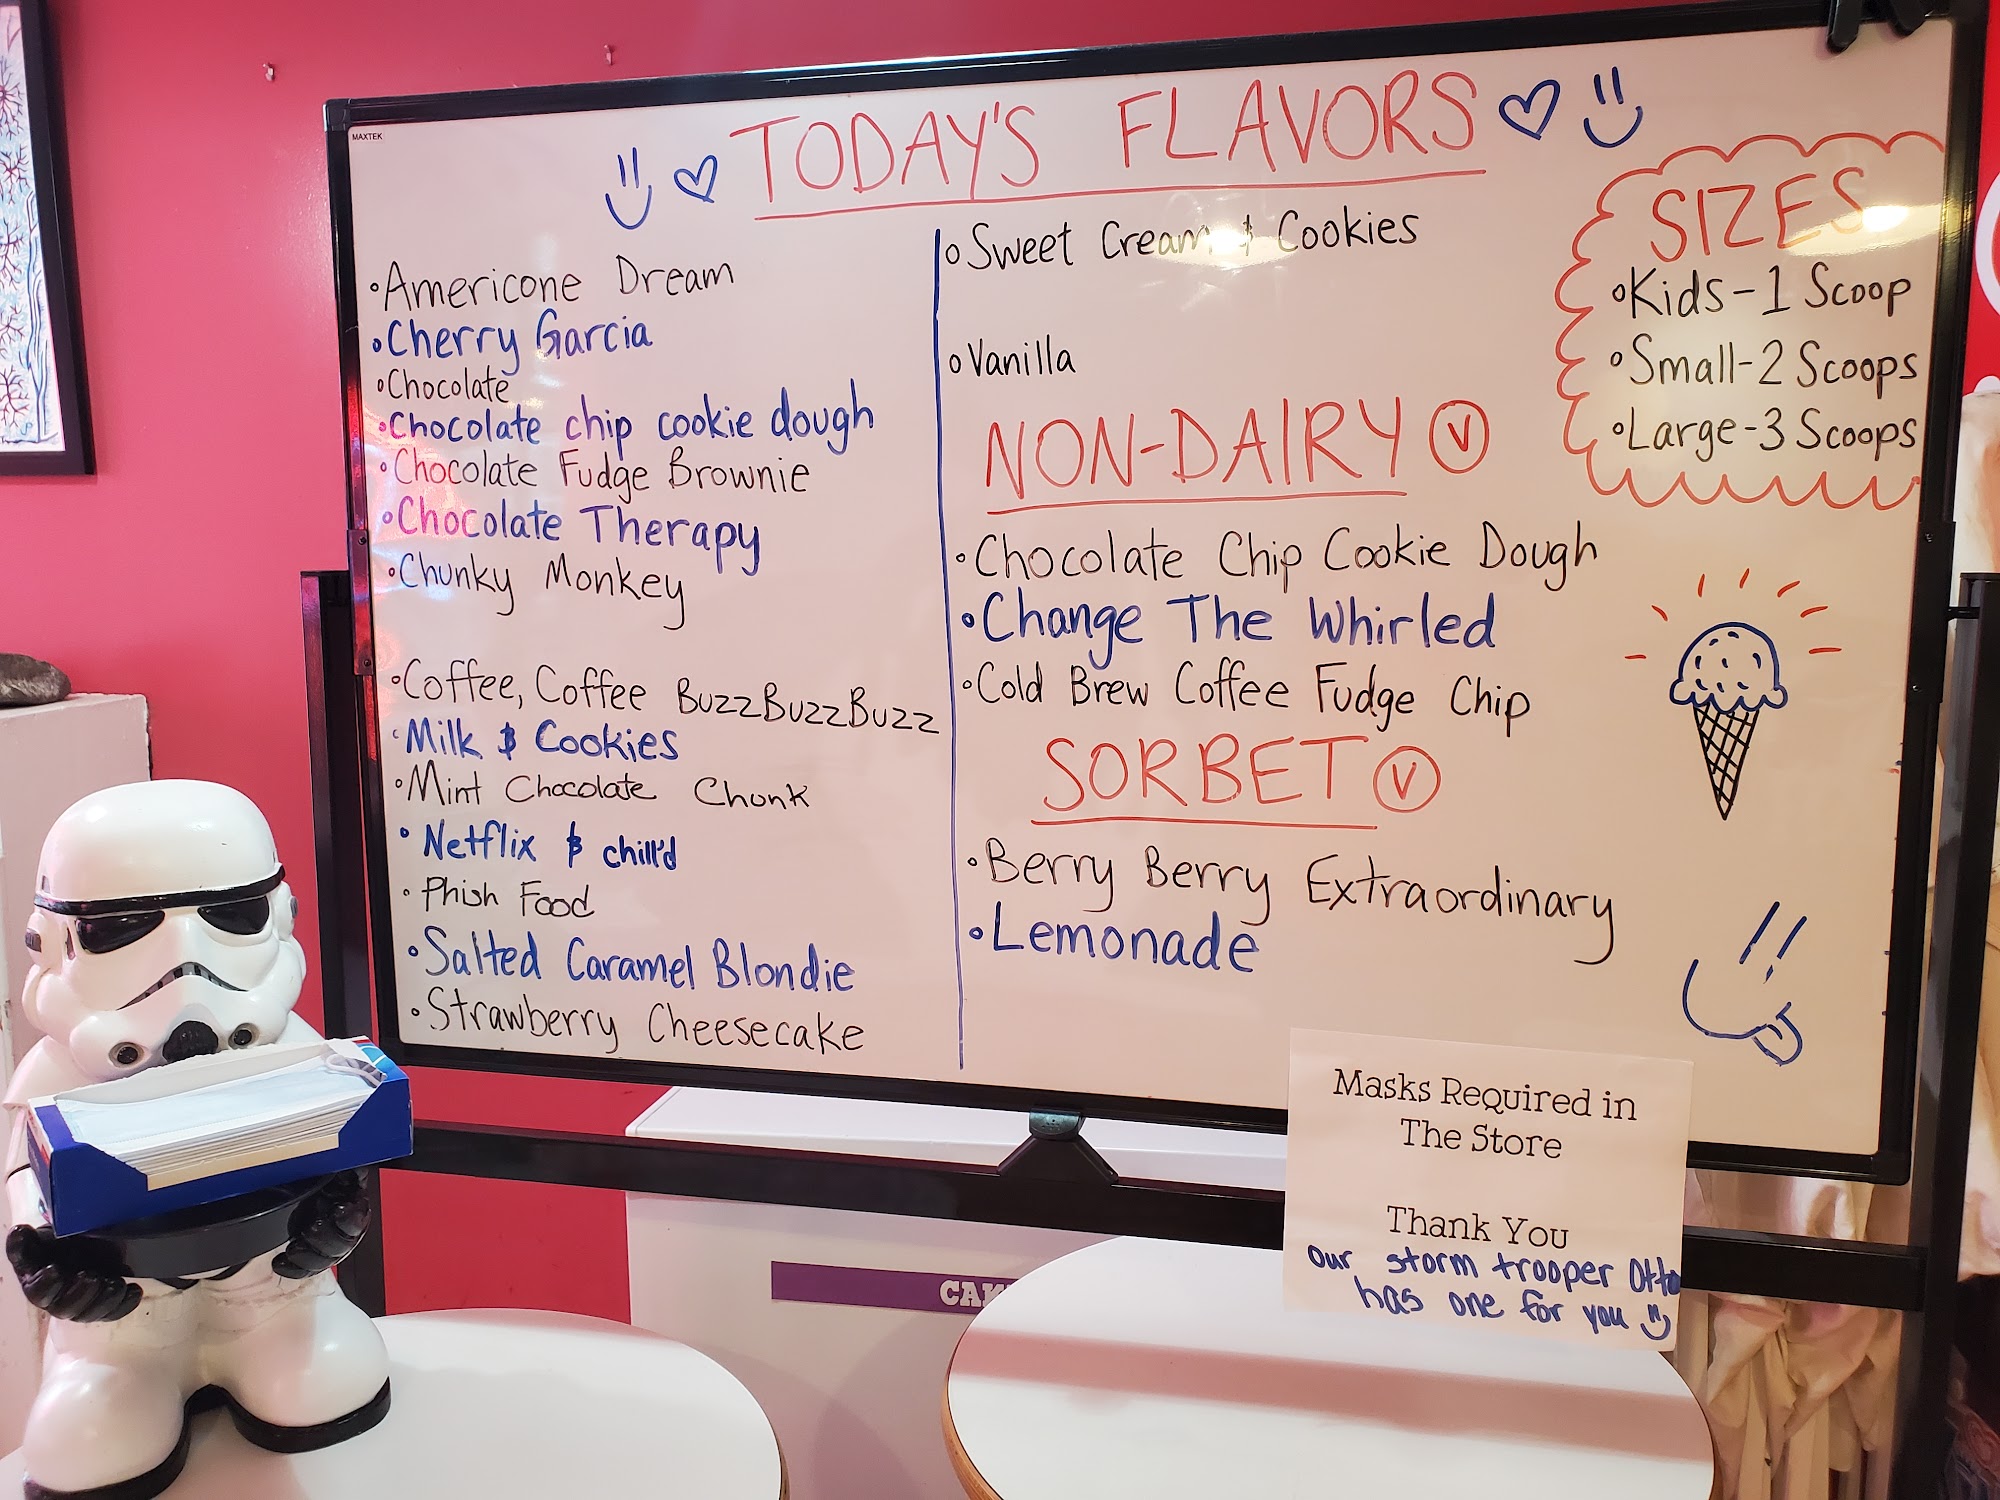 MAXTEK
TODAY'S FLAVORS
• Americone Dream
• Cherry Garcia
• Chocolate
• Chocolate chip cookie dough
• Chocolate Fudge Brownie
• Chocolate Therapy
• Chunky Monkey
• Coffee, Coffee BuzzBuzzBuzz
• Milk & Cookies
• Mint Chocolate Chunk
• Netflix & chill'd
• Phish Food
• Salted Caramel Blondie
• Strawberry Cheesecake
• Sweet Cream & Cookies
• Vanilla
NON-DAIRY V
• Chocolate Chip Cookie Dough
• Change The Whirled
• Cold Brew Coffee Fudge Chip
SORBET V
• Berry Berry Extraordinary
• Lemonade
SIZES
• Kids-1 Scoop
• Small-2 Scoops
• Large-3 Scoops
Masks Required in
The Store
Thank You
our storm trooper Otto
has one for you